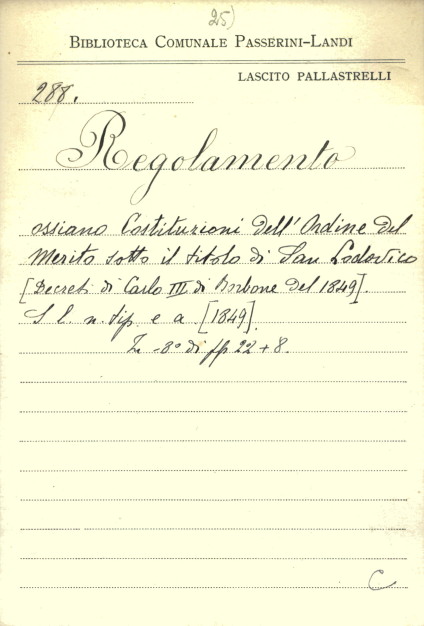 25)
BIBLIOTECA COMUNALE PASSERINI-LANDI
LASCITO PALLASTRELLI
288.
Regolamento
ossiano Costituzioni dell'Ordine del
Merito sotto il titolo di San Lodovico
[Decreti di Carlo III di Borbone del 1849].
S. l. n. tip. e a. [1849].
In -8° di pp 22 + 8.
C